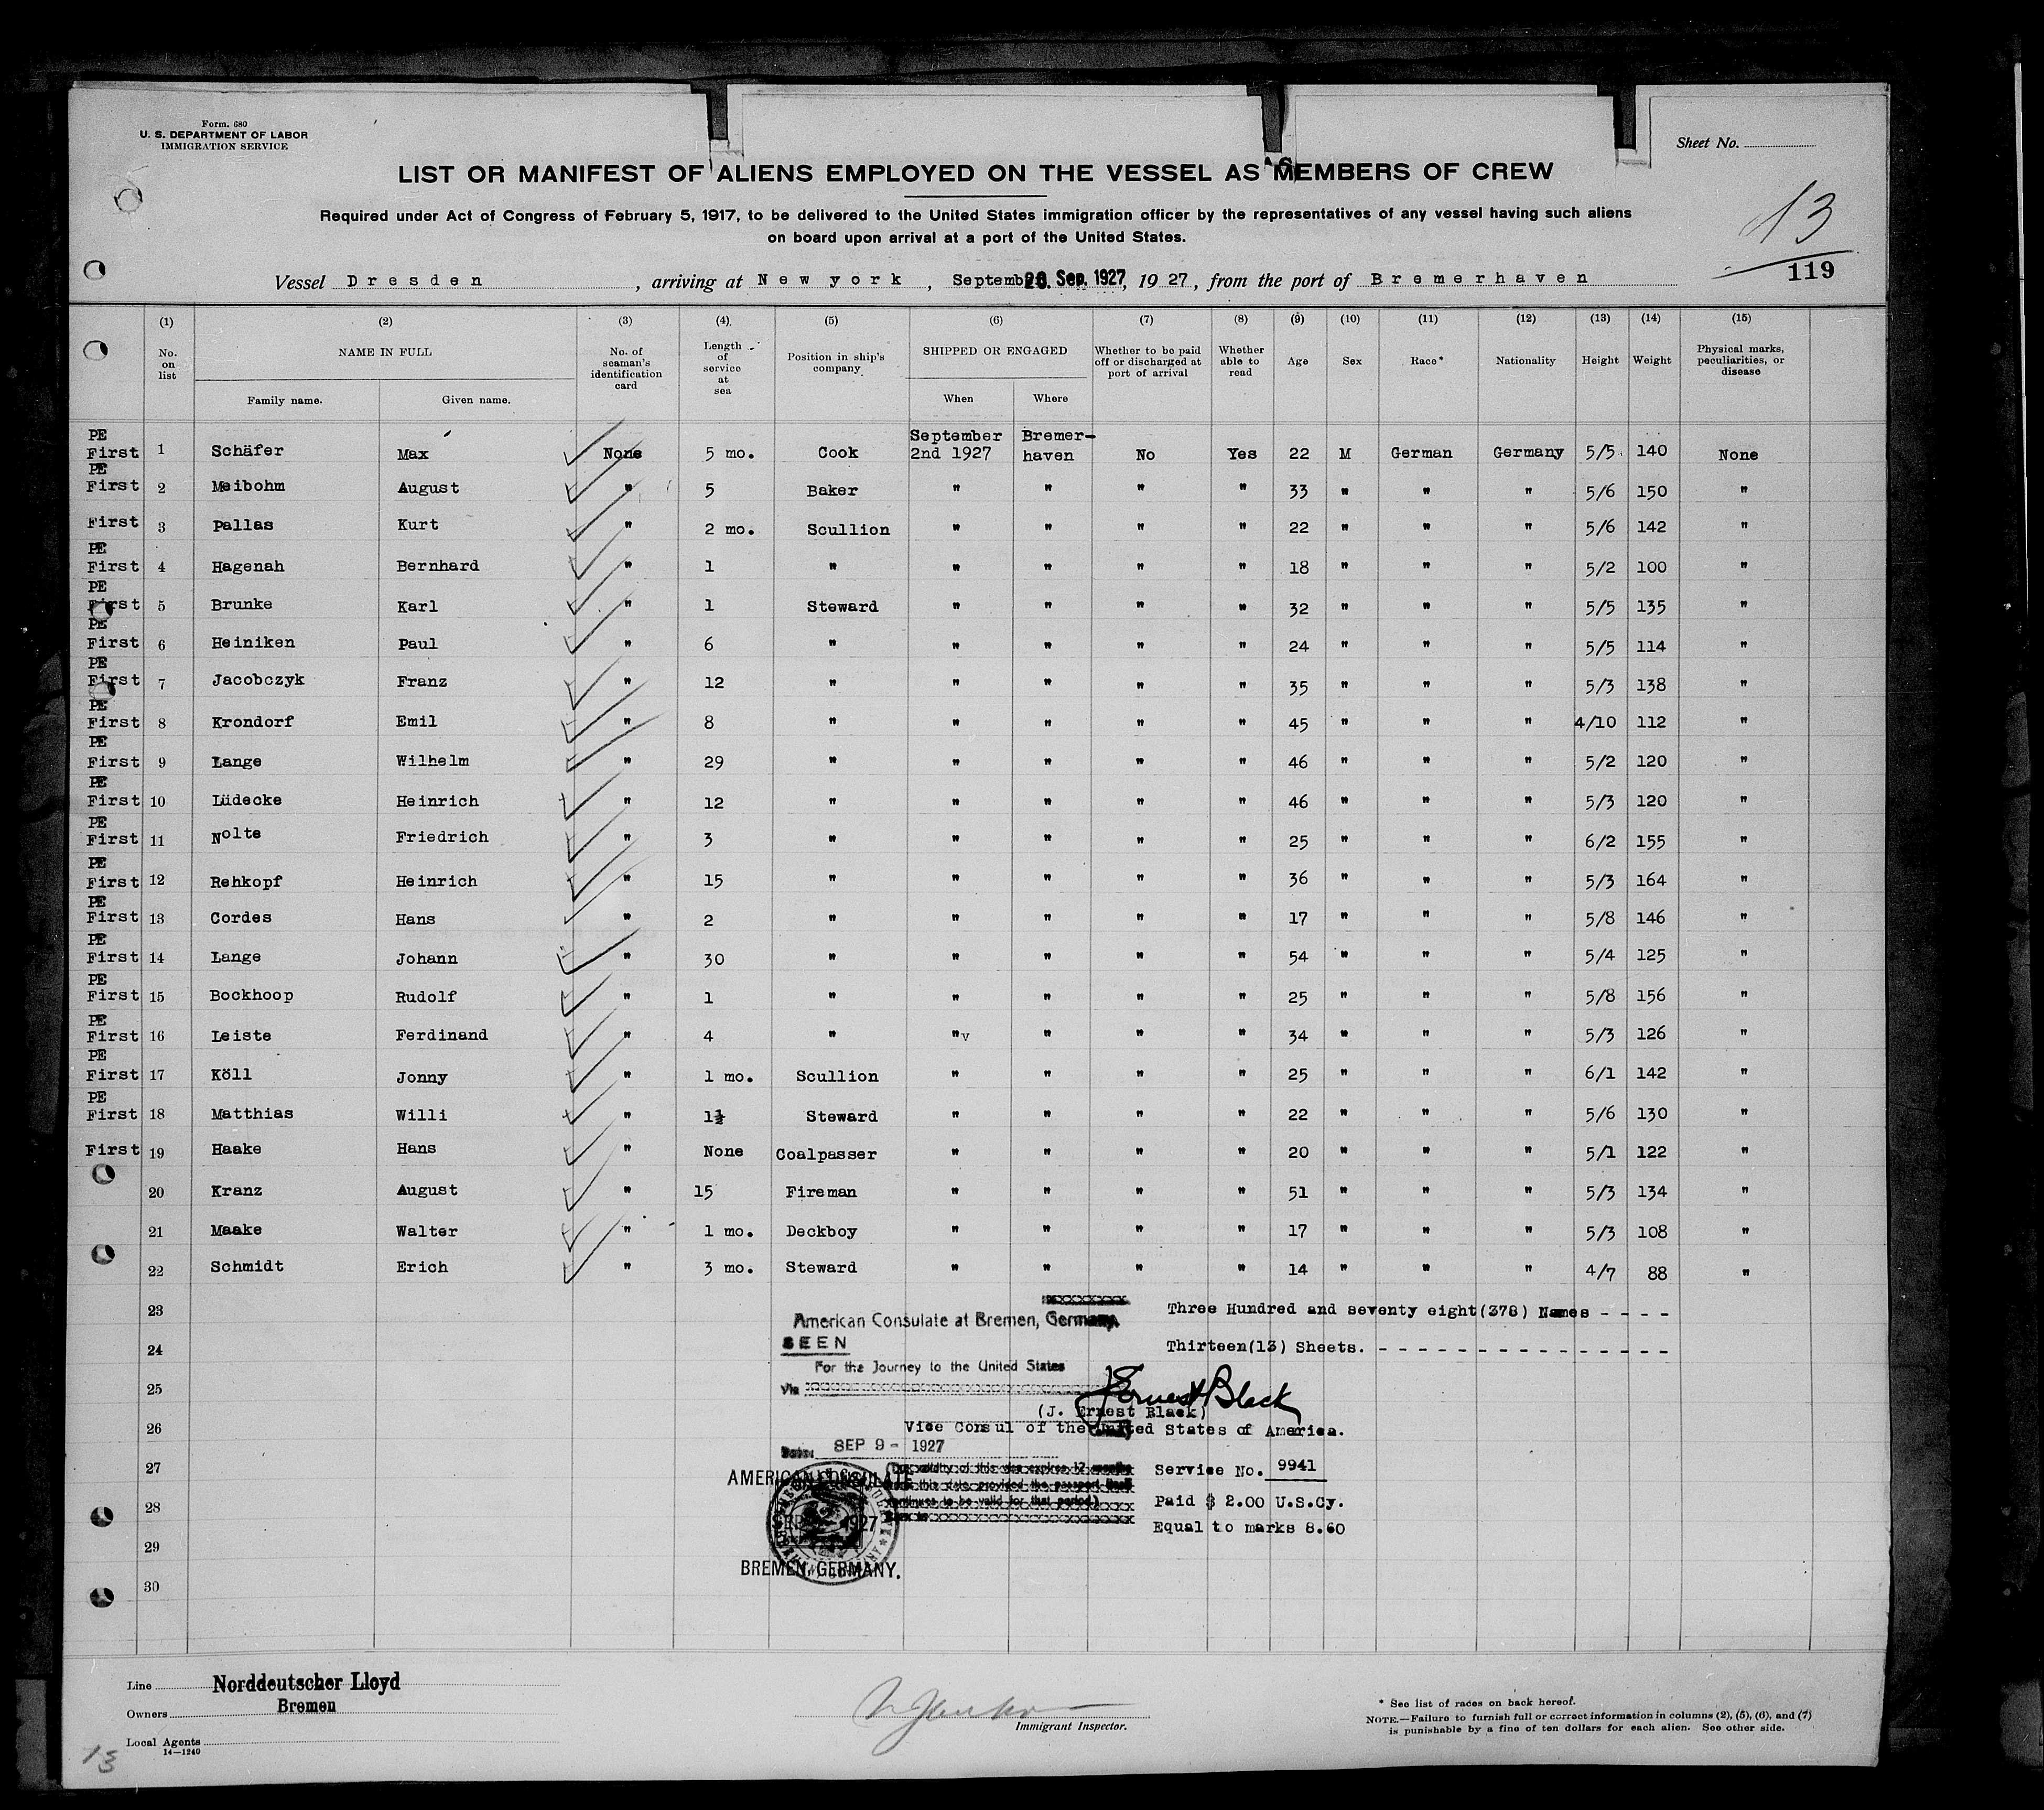 Form. 680
U. S. DEPARTMENT OF LABOR
IMMIGRATION SERVICE
Sheet No.
LIST OR MANIFEST OF ALIENS EMPLOYED ON THE VESSEL AS MEMBERS OF CREW
Required under Act of Congress of February 5, 1917, to be delivered to the United States immigration officer by the representatives of any vessel having such aliens
on board upon arrival at a port of the United States.
13
119
Vessel Dresden, arriving at New york, September 20. Sep. 1927, 1927, from the port of Bremerhaven
(1) (2) (3) (4) (5) (6) (7) (8) (9) (10) (11) (12) (13) (14) (15)
No. on list NAME IN FULL Family name. Given name. No. of seaman's identification card Length of service at sea Position in ship's company SHIPPED OR ENGAGED When Where Whether to be paid off or discharged at port of arrival Whether able to read Age Sex Race* Nationality Height Weight Physical marks, peculiarities, or disease
PE First 1 Schäfer Max None 5 mo. Cook September 2nd 1927 Bremer-haven No Yes 22 M German Germany 5/5 140 None
PE First 2 Meibohm August " 5 Baker " " " " 33 " " " 5/6 150 "
First 3 Pallas Kurt " 2 mo. Scullion " " " " 22 " " " 5/6 142 "
PE First 4 Hagenah Bernhard " 1 " " " " " 18 " " " 5/2 100 "
PE First 5 Brunke Karl " 1 Steward " " " " 32 " " " 5/5 135 "
PE First 6 Heiniken Paul " 6 " " " " " 24 " " " 5/5 114 "
PE First 7 Jacobczyk Franz " 12 " " " " " 35 " " " 5/3 138 "
PE First 8 Krondorf Emil " 8 " " " " " 45 " " " 4/10 112 "
PE First 9 Lange Wilhelm " 29 " " " " " 46 " " " 5/2 120 "
PE First 10 Lüdecke Heinrich " 12 " " " " " 46 " " " 5/3 120 "
PE First 11 Nolte Friedrich " 3 " " " " " 25 " " " 6/2 155 "
PE First 12 Rehkopf Heinrich " 15 " " " " " 36 " " " 5/3 164 "
PE First 13 Cordes Hans " 2 " " " " " 17 " " " 5/8 146 "
PE First 14 Lange Johann " 30 " " " " " 54 " " " 5/4 125 "
PE First 15 Bockhoop Rudolf " 1 " " " " " 25 " " " 5/8 156 "
PE First 16 Leiste Ferdinand " 4 " "v " " " 34 " " " 5/3 126 "
PE First 17 Köll Jonny " 1 mo. Scullion " " " " 25 " " " 6/1 142 "
PE First 18 Matthias Willi " 1½ Steward " " " " 22 " " " 5/6 130 "
First 19 Haake Hans " None Coalpasser " " " " 20 " " " 5/1 122 "
20 Kranz August " 15 Fireman " " " " 51 " " " 5/3 134 "
21 Maake Walter " 1 mo. Deckboy " " " " 17 " " " 5/3 108 "
22 Schmidt Erich " 3 mo. Steward " " " " 14 " " " 4/7 88 "
23 Three Hundred and seventy eight(378) Names - - - -
American Consulate at Bremen, Germany.
24 SEEN Thirteen(13) Sheets. - - - - - - - - - - - - - - -
For the Journey to the United States
25 Via
J Ernest Black
(J. Ernest Black)
26 Vice Consul of the United States of America.
Date: SEP 9 - 1927
27 Service No. 9941
AMERICAN CONSULATE
28 Paid $ 2.00 U.S.Cy.
1927
Equal to marks 8.60
29
BREMEN, GERMANY.
30
Line Norddeutscher Lloyd
Bremen
Owners
Local Agents
14—1240
13
Immigrant Inspector.
* See list of races on back hereof.
NOTE.—Failure to furnish full or correct information in columns (2), (5), (6), and (7)
is punishable by a fine of ten dollars for each alien. See other side.